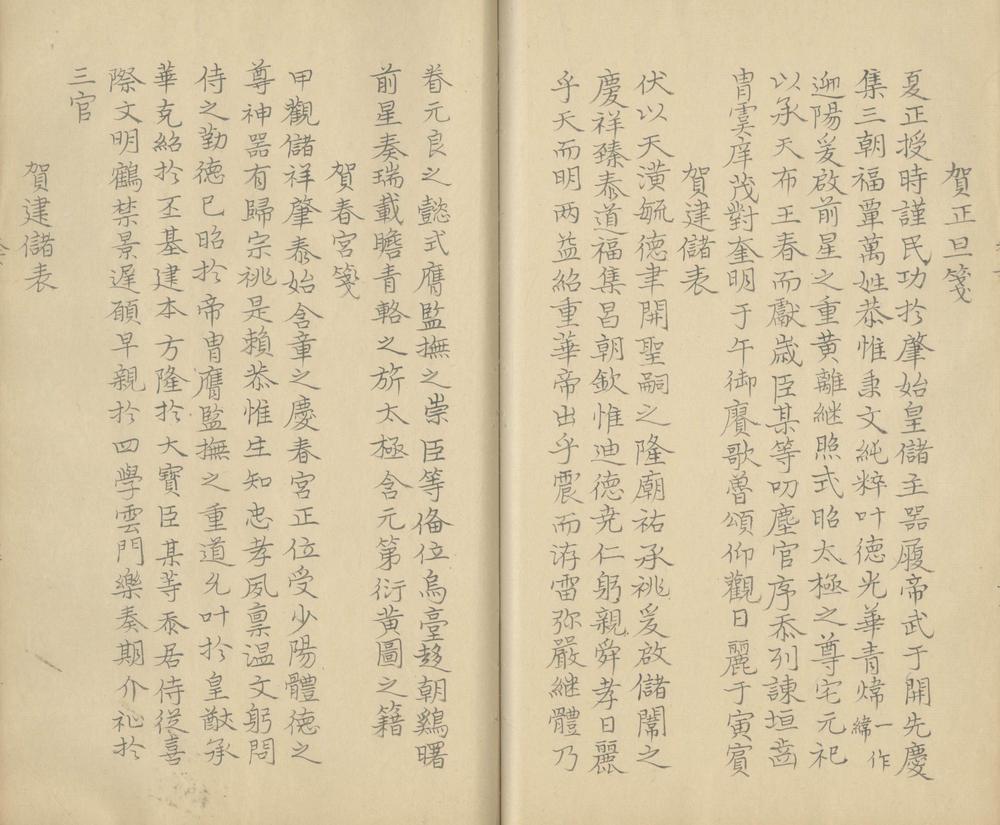 賀正旦箋
夏正授時謹民功於肇始皇儲主器履帝武于開先慶
集三朝福覃萬姓恭惟秉文純粹叶德光華青煒一作緯
迎陽爰啟前星之重黄離継照式昭太極之尊宅元祀
以承天布王春而獻歲臣某等叨塵官序忝列諫垣齒
胄虞庠茂對奎明于午御賡歌魯頌仰觀日麗于寅賓
賀建儲表
伏以天潢毓德聿開聖嗣之隆廟祐承祧爰啟儲闈之
慶祥臻泰道福集昌朝欽惟迪德尭仁躬親舜孝日麗
乎天而明两益紹重華帝出乎震而洊雷弥嚴継體乃
眷元良之懿式膺監撫之崇臣等俻位烏臺趍朝鷄曙
前星奏瑞載瞻青輅之旂太極含元第衍黃圖之籍
賀春宮箋
甲觀儲祥肇泰始含章之慶春宮正位受少陽體德之
尊神器有歸宗祧是賴恭惟生知忠孝夙禀温文躬問
侍之勤德已昭於帝胄膺監撫之重道允叶於皇猷承
華克紹於丕基建本方隆於大寶臣某等忝居侍從喜
際文明鶴禁景遲頋早親於四學雲門樂奏期介祉於
三官
賀建儲表